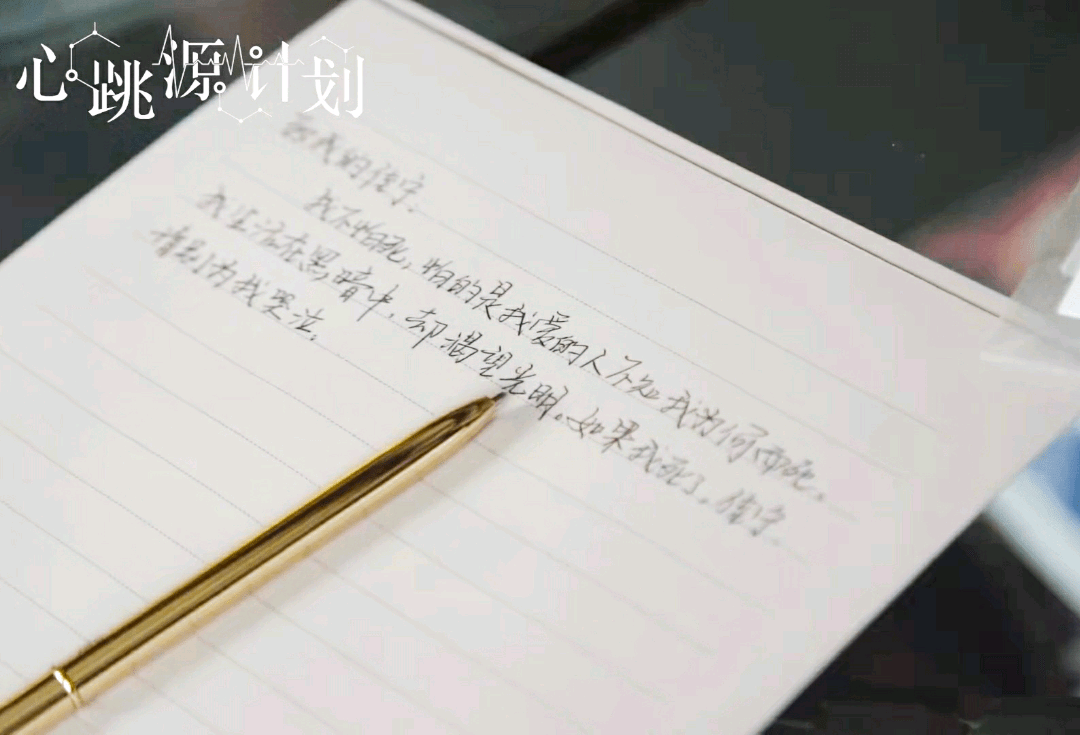 心跳源计划
我的佳宁。
我不怕死，怕的是我爱的人不知我为何而死。
我生活在黑暗中，却渴望光明。如果我死了，佳宁，
请别为我哭泣。